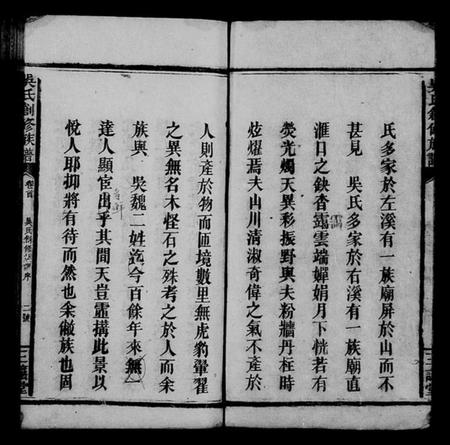 氏多家於左溪有一族廟屏於山而不
甚見　吳氏多家於右溪有一族廟直
滙日之鈌杳靄雲端嬋娟月下恍若有
熒光燭天異彩振野與夫粉牆丹桎時
炫燿焉夫山川清淑奇偉之氣不產於
人則產於物而匝境數里無虎豹翬翟
之異無名木怪石之殊考之於人而余
族與　吳魏二姓迄今百餘年來無一
達人顯宦出乎其間天豈虛搆此景以
悅人耶抑將有待而然也余儆族也固
吳氏創修族譜
卷首
二號
三讓堂